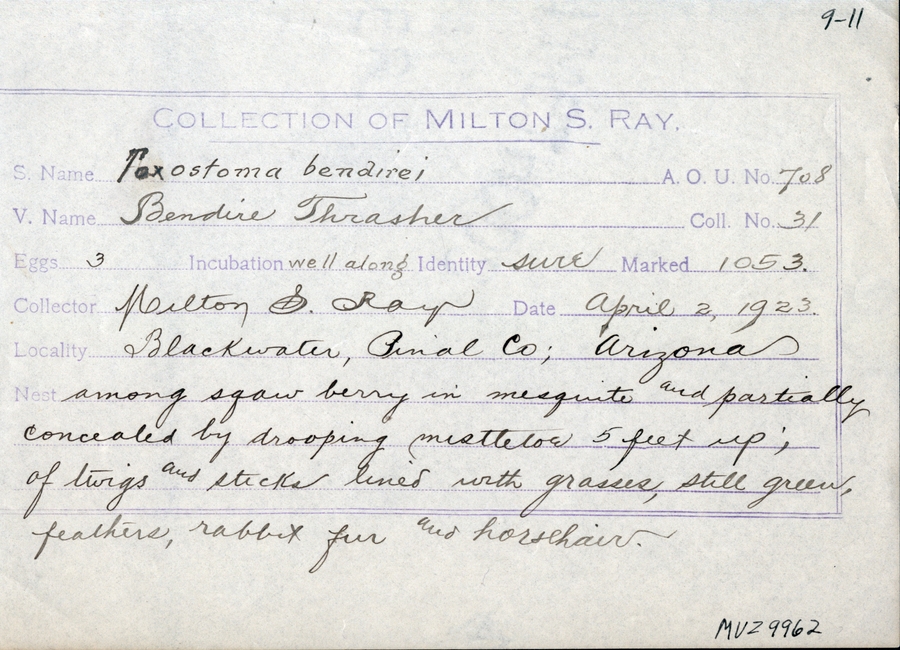 9-11
COLLECTION OF MILTON S. RAY.
S. Name Toxostoma bendirei A. O. U. No. 708
V. Name Bendire Thrasher Coll. No. 31
Eggs 3 Incubation well along Identity sure Marked 1053.
Collector Milton S. Ray Date April 2, 1923.
Locality Blackwater, Pinal Co; Arizona
Nest among sqaw berry in mesquite and partially
concealed by drooping mistletoe 5 feet up;
of twigs and sticks lined with grasses, still green,
feathers, rabbit fur and horsehair.
MVZ 9962